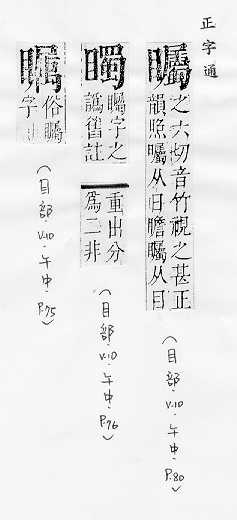 正字通
矚
之六切音竹視之甚正
韻照曯从日瞻矚从目
(目部.V.10.午中.P.80)
矚字之
譌舊註
重出分
爲二非
(目部.V.10.午中.P.76)
俗矚
字
(目部.V.10.午中.P.75)